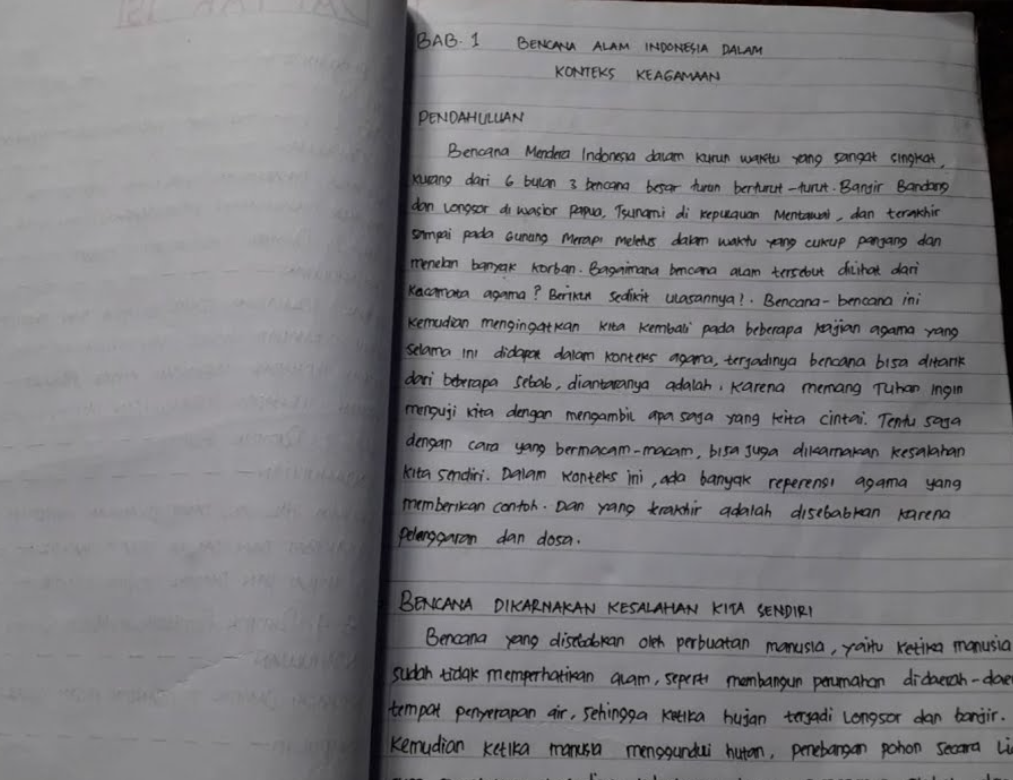 BAB. 1 BENCANA ALAM INDONESIA DALAM
KONTEKS KEAGAMAAN
PENDAHULUAN
Bencana Mendera Indonesia dalam kurun waktu yang sangat singkat,
kurang dari 6 bulan 3 bencana besar turun berturut-turut. Banjir Bandang
dan Longsor di wasior Papua, Tsunami di kepulauan Mentawai, dan terakhir
sampai pada Gunung Merapi meletus dalam waktu yang cukup panjang dan
menelan banyak korban. Bagaimana bencana alam tersebut dilihat dari
kacamata agama? Berikut sedikit ulasannya!. Bencana-bencana ini
kemudian mengingatkan kita kembali pada beberapa kajian agama yang
selama ini didapat dalam konteks agama, terjadinya bencana bisa ditarik
dari beberapa sebab, diantaranya adalah, karena memang Tuhan ingin
menguji kita dengan mengambil apa saja yang kita cintai. Tentu saja
dengan cara yang bermacam-macam, bisa juga dikarnakan kesalahan
kita sendiri. Dalam konteks ini, ada banyak reperensi agama yang
memberikan contoh. Dan yang terakhir adalah disebabkan karena
pelanggaran dan dosa.
BENCANA DIKARNAKAN KESALAHAN KITA SENDIRI
Bencana yang disebabkan oleh perbuatan manusia, yaitu ketika manusia
sudah tidak memperhatikan alam, seperti membangun perumahan didaerah-daer
tempat penyerapan air, sehingga ketika hujan terjadi Longsor dan banjir.
Kemudian ketika manusia menggunduli hutan, penebangan pohon secara Li